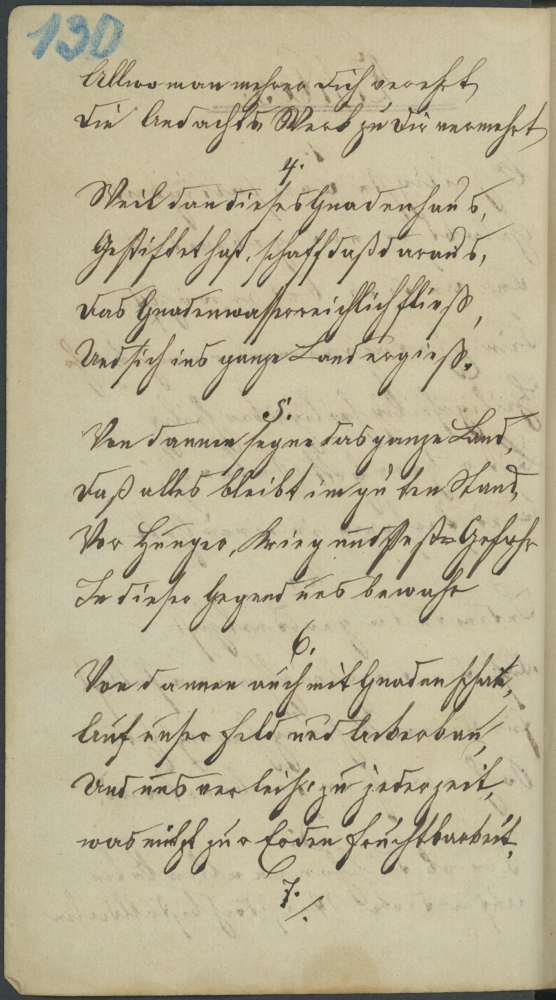 130
Allwo man mehrer dich verehrt
Die Andachts Werk zu dir vermehrt
4.
Weil dan dieses Gnadenhaus,
Gestiftet hast, schaff daß daraus,
Das Gnadenwasser reichlich fließ,
Und sich ins ganze Land ergieß.
5.
Von dannen segne das ganze Land,
Daß alles bleibt im guten Stand,
Vor Hunger, Krieg und Pest=Gefahr
In dieser Gegend uns bewahr
6.
Von dannen auch mit Gnaden schau,
Auf unser Feld und Ackerbau,
Und uns verleihe zu jederzeit,
was nützt zur Erden Fruchtbarkeit,
7.